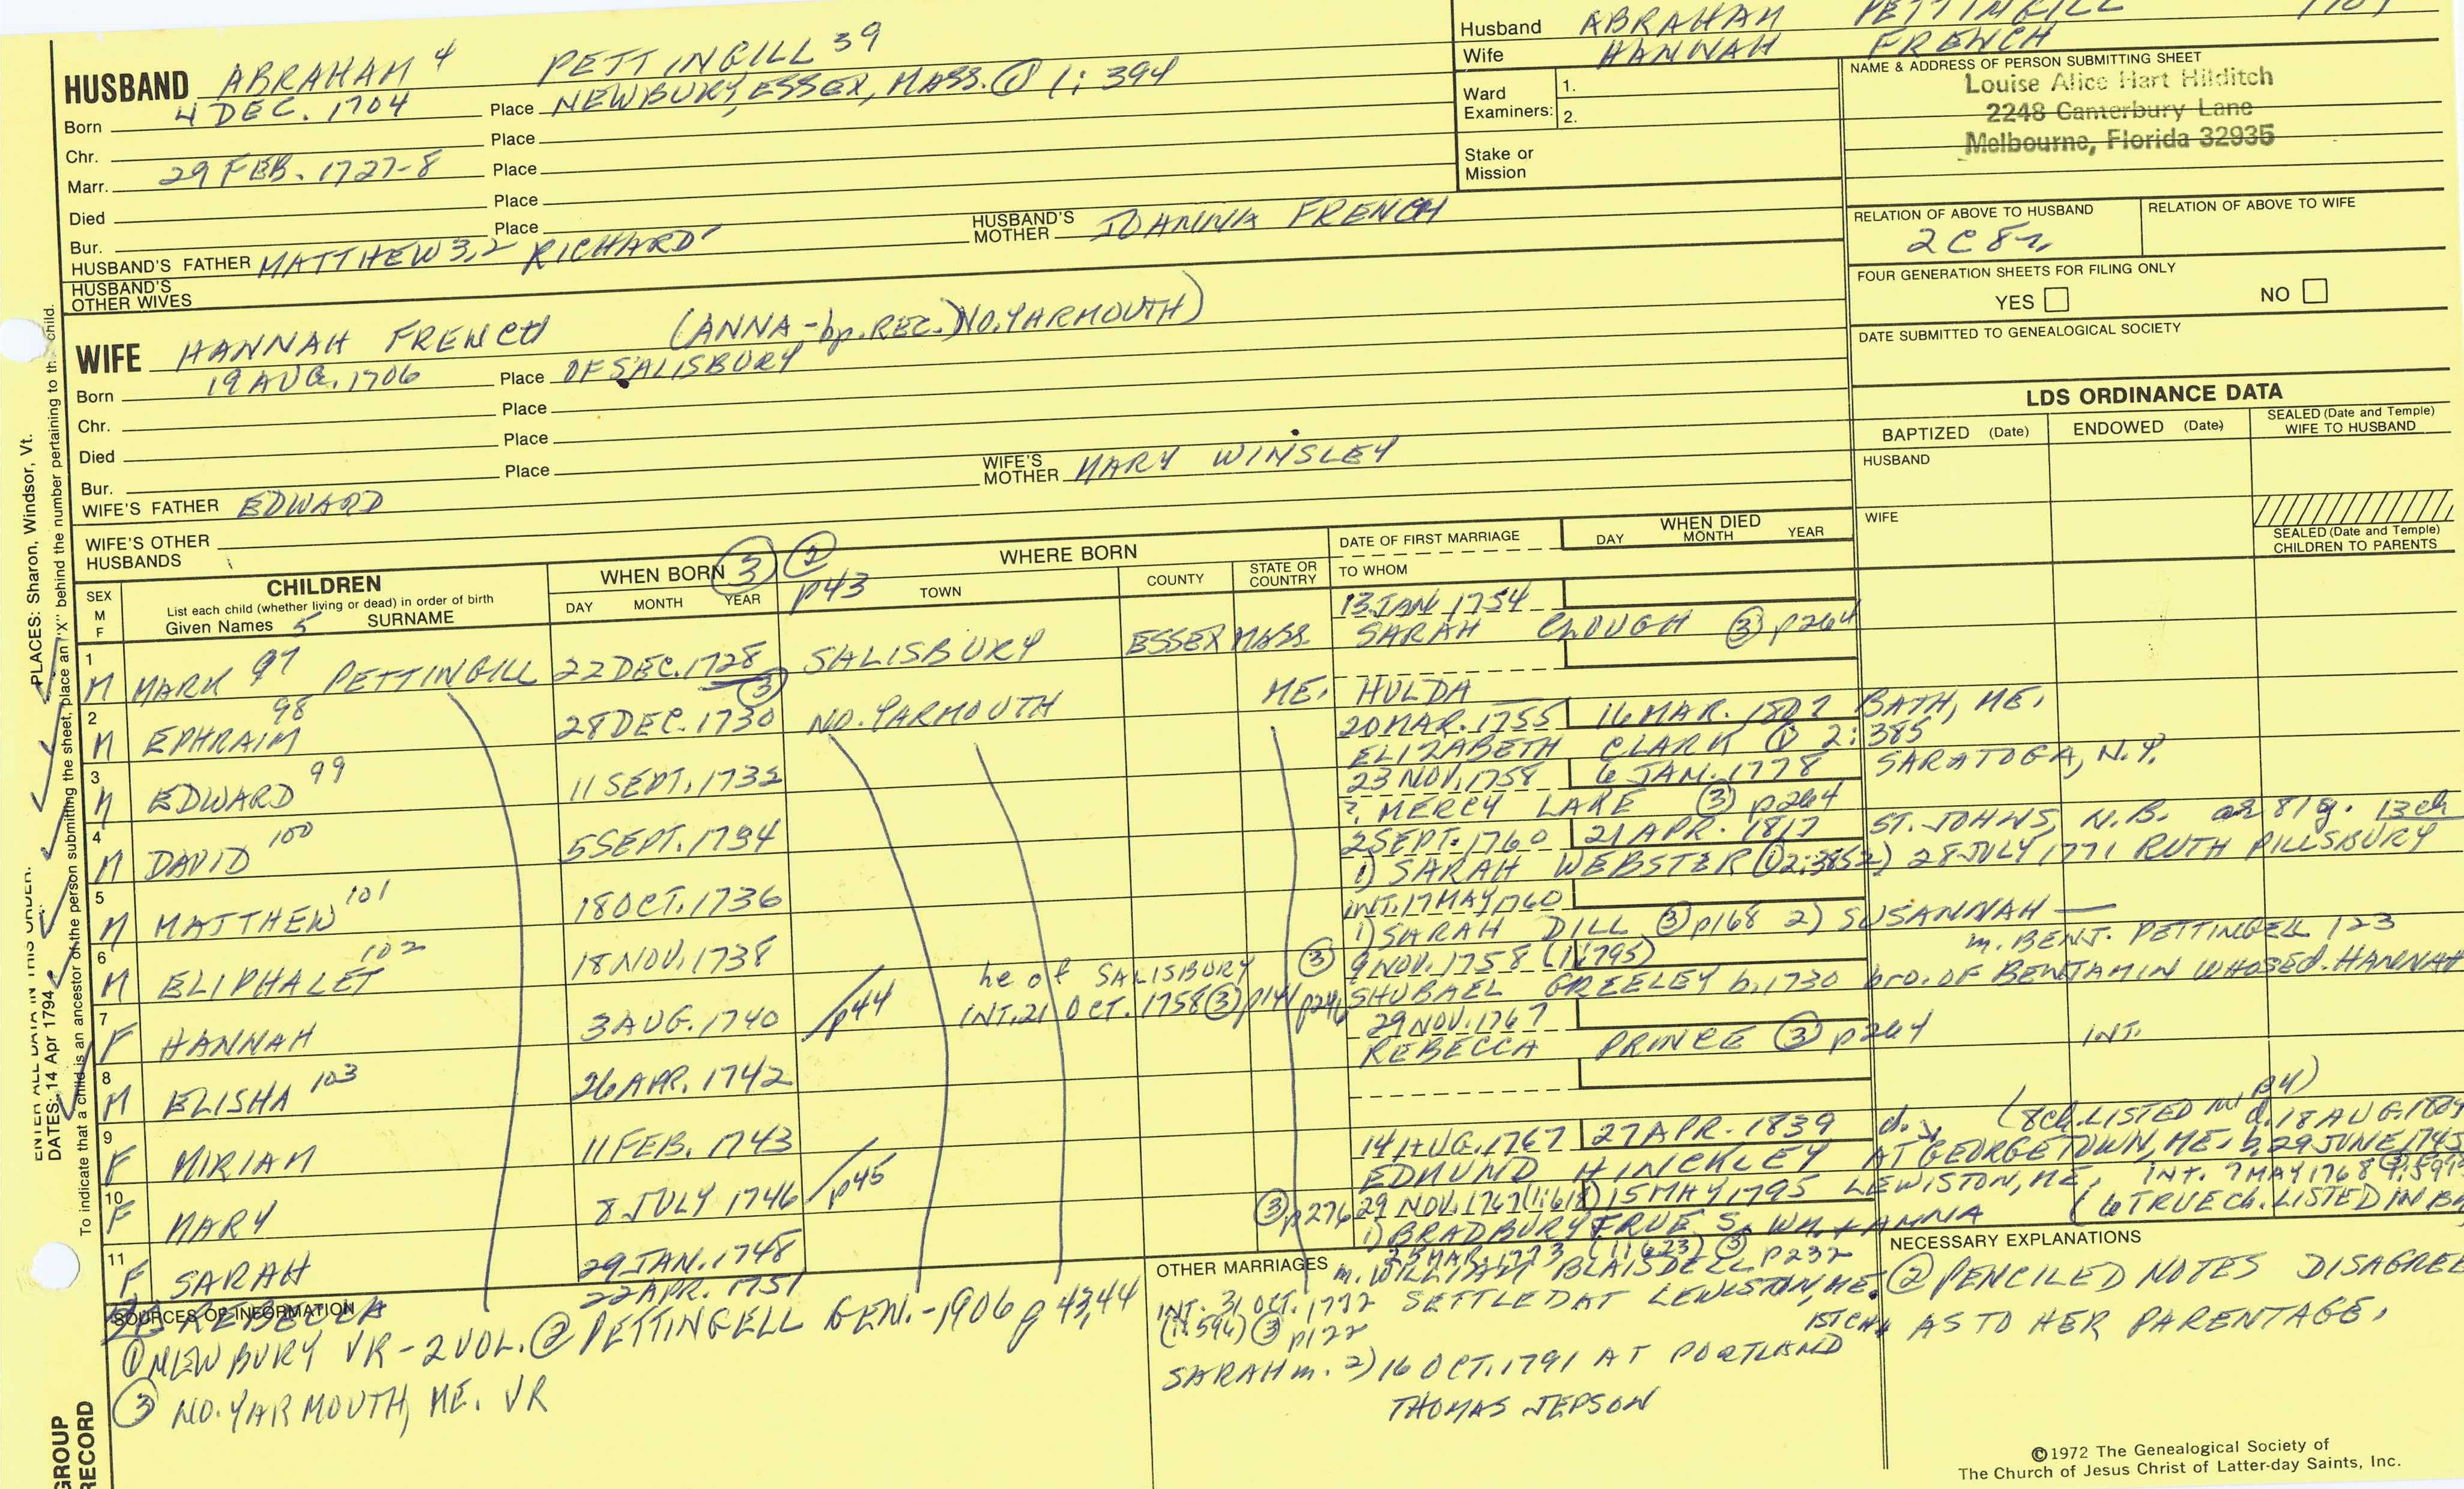 Husband ABRAHAM PETTINGILL
Wife HANNAH FRENCH
HUSBAND ABRAHAM 4 PETTINGILL 39
Born 4 DEC. 1704 Place NEWBURY, ESSEX, MASS. ① 1: 394
Chr. Place
Marr. 29 FEB. 1727-8 Place
Died Place
Bur. Place
HUSBAND'S FATHER MATTHEW 3,2 RICHARD' HUSBAND'S MOTHER JOANNA FRENCH
HUSBAND'S OTHER WIVES
Ward Examiners: 1. 2.
Stake or Mission
NAME & ADDRESS OF PERSON SUBMITTING SHEET
Louise Alice Hart Hilditch
2248 Canterbury Lane
Melbourne, Florida 32935
RELATION OF ABOVE TO HUSBAND RELATION OF ABOVE TO WIFE
2C 8r,
FOUR GENERATION SHEETS FOR FILING ONLY
YES NO
DATE SUBMITTED TO GENEALOGICAL SOCIETY
WIFE HANNAH FRENCH (ANNA-bp. REC.) NO. YARMOUTH)
Born 19 AUG. 1706 Place OF SALISBURY
Chr. Place
Died Place
Bur. Place
WIFE'S FATHER EDWARD WIFE'S MOTHER MARY WINSLEY
WIFE'S OTHER HUSBANDS
LDS ORDINANCE DATA
BAPTIZED (Date) ENDOWED (Date) SEALED (Date and Temple) WIFE TO HUSBAND
HUSBAND
WIFE
SEALED (Date and Temple) CHILDREN TO PARENTS
SEX M F
CHILDREN
List each child (whether living or dead) in order of birth
Given Names 5 SURNAME
WHEN BORN ③ ② p43
DAY MONTH YEAR
WHERE BORN
TOWN COUNTY STATE OR COUNTRY
DATE OF FIRST MARRIAGE
TO WHOM
WHEN DIED
DAY MONTH YEAR
1 M MARK 97 PETTINGILL 22 DEC. 1728 ③ SALISBURY ESSEX MASS. 13 JAN 1754
SARAH CLOUGH ③ p264
2 M EPHRAIM 98 28 DEC. 1730 NO. YARMOUTH ME. HULDA
3 M EDWARD 99 11 SEPT. 1732 20 MAR. 1755 16 MAR. 1807 BATH, ME.
ELIZABETH CLARK ① 2: 385
4 M DAVID 100 5 SEPT. 1734 23 NOV. 1758 6 JAN. 1778 SARATOGA, N.Y.
? MERCY LAKE ③ p264
5 M MATTHEW 101 18 OCT. 1736 2 SEPT. 1760 21 APR. 1817 ST. JOHNS, N.B. ae 81y. 13 ch
1) SARAH WEBSTER ① 2:385 2) 28 JULY 1771 RUTH PILLSBURY
6 M ELIPHALET 102 18 NOV. 1738 INT. 17 MAY 1760
1) SARAH DILL ③ p168 2) SUSANNAH —
m. BENJ. PETTINGELL 123
7 F HANNAH 3 AUG. 1740 p44 he of SALISBURY ③ 9 NOV. 1758 (1:795)
INT. 21 OCT. 1758 ③ p141 SHUBAEL GREELEY b. 1730 bro. OF BENJAMIN WHOSE d. HANNAH
8 M ELISHA 103 26 APR. 1742 29 NOV. 1767
REBECCA PRINCE ③ p264 INT.
9 F MIRIAM 11 FEB. 1743
10 F MARY 8 JULY 1746 p45 14 AUG. 1767 27 APR. 1839 d. (8 ch. LISTED d. 18 AUG.
EDMUND HINCKLEY AT GEORGETOWN, ME. b. 29 JUNE 1745
11 F SARAH 29 JAN. 1748 ③ p276 29 NOV. 1767 (1:618) 15 MAY 1795 LEWISTON, ME, INT. 7 MAY 1768
1) BRADBURY TRUE S. WM. + ANNA (6 TRUE Ch. LISTED IN
REBECCA 22 APR. 1751
SOURCES OF INFORMATION
① NEWBURY VR - 2 VOL. ② PETTINGELL GEN. - 1906 p 43,44
③ NO. YARMOUTH, ME. VR
OTHER MARRIAGES
25 MAR. 1773 (1:623) ③ p232
m. WILLIAM BLAISDELL
INT. 31 OCT. 1772 SETTLED AT LEWISTON, ME.
(1:596) ③ p122
SARAH m. 2) 16 OCT. 1791 AT PORTLAND
THOMAS JEPSON
NECESSARY EXPLANATIONS
② PENCILED NOTES DISAGREE
AS TO HER PARENTAGE.
©1972 The Genealogical Society of
The Church of Jesus Christ of Latter-day Saints, Inc.
PLACES: Sharon, Windsor, Vt.
ENTER ALL DATA IN THIS ORDER.
DATES: 14 Apr 1794
To indicate that a child is an ancestor of the person submitting the sheet, place an "X" behind the number pertaining to the child.
GROUP RECORD